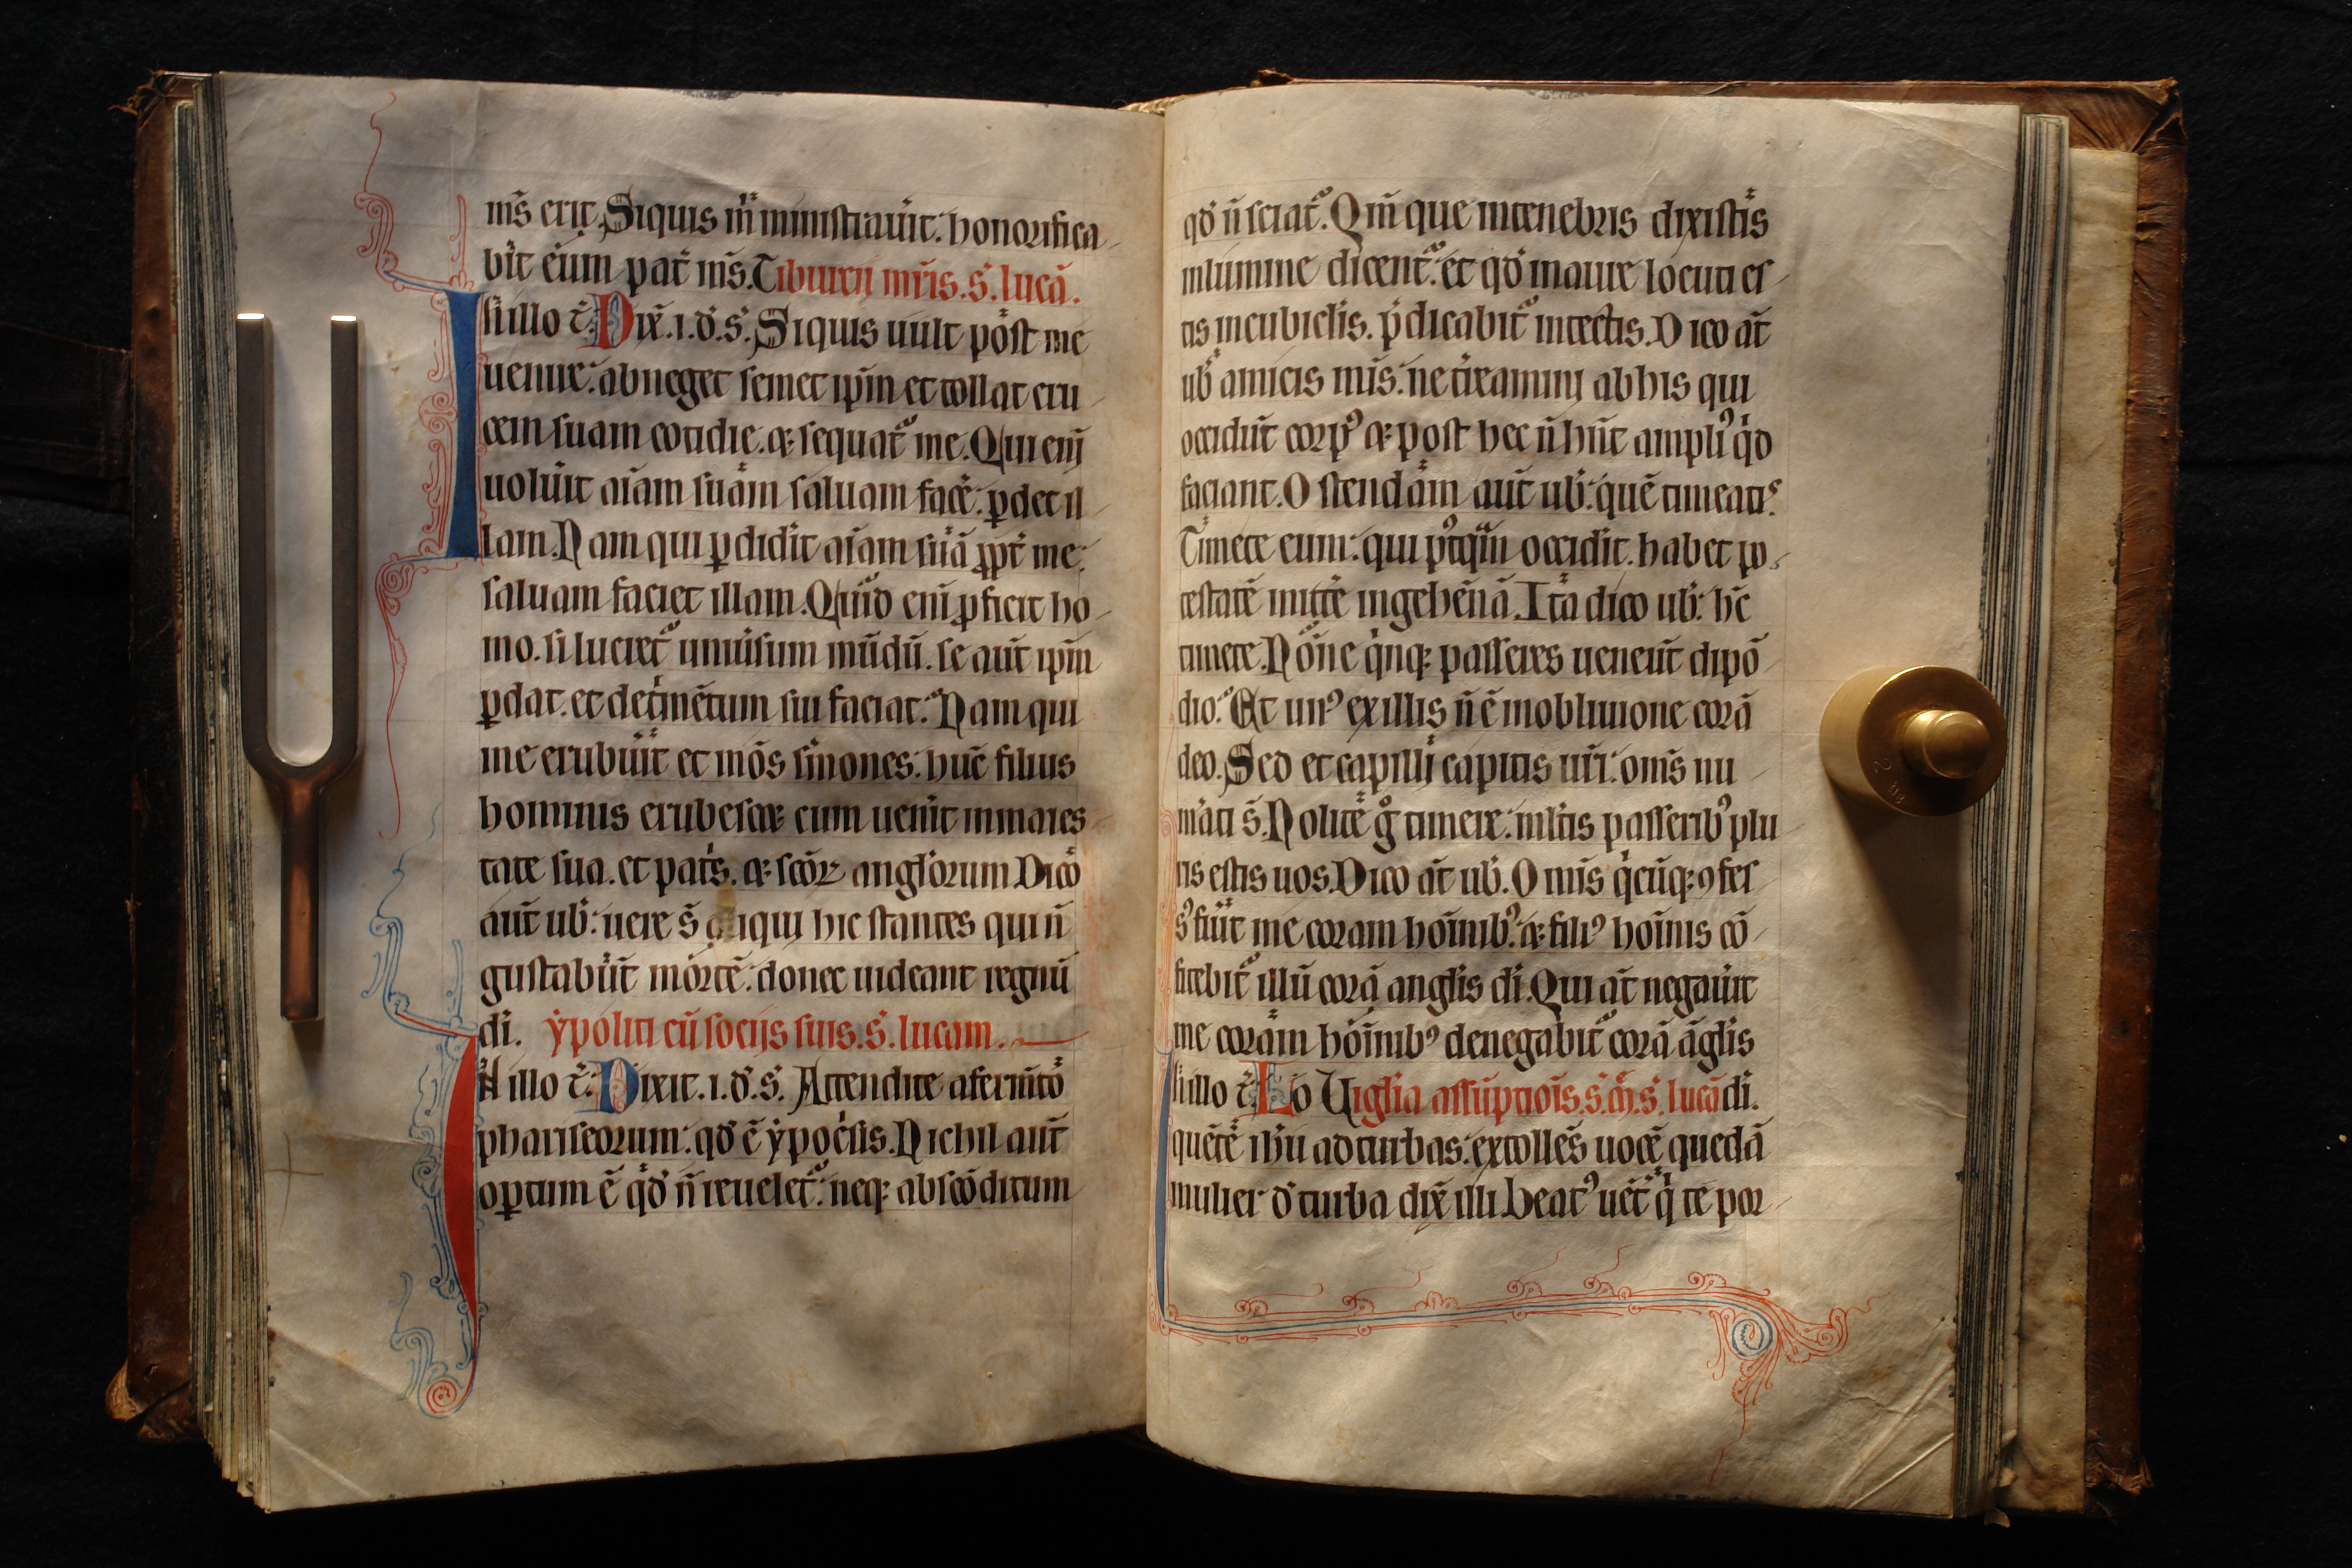 m̅s erit. Siquis m̅ ministrauit: honorifica
bit eum pat̅ m̅s. Tiburcij mr̅is. s. lucā.
N illo t̅. Dix̅. i. d̕. s̕. Siquis uult post me
uenire: abneget semet ip̅m et tollat cru
cem suam cotidie. ⁊ sequat̅ me. Qui eni̅
uolu̅it ai̅am suam saluam face̅: ꝑdet il
lam. Nam qui ꝑdidit ai̅am suā ꝓpt̅ me:
saluam faciet illam. Quid eni̅ ꝓficit ho
mo. si lucret̅ uniu̅sum mūdū. se aut̅ ip̅m
ꝑdat. et det̅mētum sui faciat: Nam qui
me erubu̅it et meos s̅mones: hūc filius
hominis erubescet cum uen̅it in maies
tate sua. et pat̅s. ⁊ sc̅oꝝ anglorum Dico
aut̅ ub̅: uere s̅ aliqui hic stantes qui n̅
gustabūt mortē: donec uideant regnū
di. ẏpoliti cū socijs suis. s̕. lucam.
N illo t̅. Dixit. i. d̕. s̕. Attendite a ferm̅to
phariseorum: qd̕ ē ẏpoc̅sis. Nichil aut̅
opꝑtum ē qd̕ n̅ reuelet̅: neqꝫ absco̅ditum
qd̕ n̅ sciat̅. Qm̅ que in tenebris dixistis
in lumine dicent̅: et qd̕ in aure locuti es
tis in cubiclis. p̅dicabit̅ in tectis. Dico at̅
ub̅ amicis m̅is: ne t̅reamini ab his qui
occidūt corpꝰ ⁊ post hec n̅ hn̅t ampliꝰ qd
faciant. Ostendam aut̅ ub̅: quē timeatis.
Timete eum: qui pꝰtqm̅ occidit. habet po
testatē mitte̅ in gehēnā. Ita dico ub̅: hc̅
timete. No̅ne qnqꝫ passeres ueneūt dipo̅
dio: Et unꝰ ex illis n̅ ē in obliuione corā
deo. Sed et capilli capitis ur̅i: om̅s nu
m̅ati s̅. Nolite g̊ timere: ml̅tis passeribꝰ plu
ris estis uos. Dico at̅ ub̅. Omīs qcūqꝫ ꝯfes
sꝰ fu̅it me coram ho̅inibꝰ: ⁊ filiꝰ ho̅inis co̅
fitebit̅ illū corā anglis di. Qui at̅ negau̅it
me coram ho̅inibꝰ denegabit̅ corā āglis
N illo t̅. Lo Uiglia assu̅ptiois. s. m̅. s̕. lucā di.
quete̅ ih̅u ad turbas: extolles̅ uocē quedā
mulier d̕ turba dix̅ illi. Beatꝰ uet̅ q̇ te por